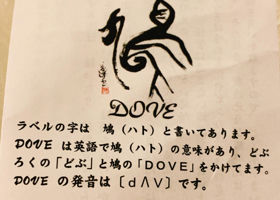 鳩
DOVE
ラベルの字は 鳩（ハト）と書いてあります。
DOVE は英語で鳩（ハト）の意味があり、どぶ
ろくの「どぶ」と鳩の「DOVE」をかけてます。
DOVE の発音は〔dΛV〕です。